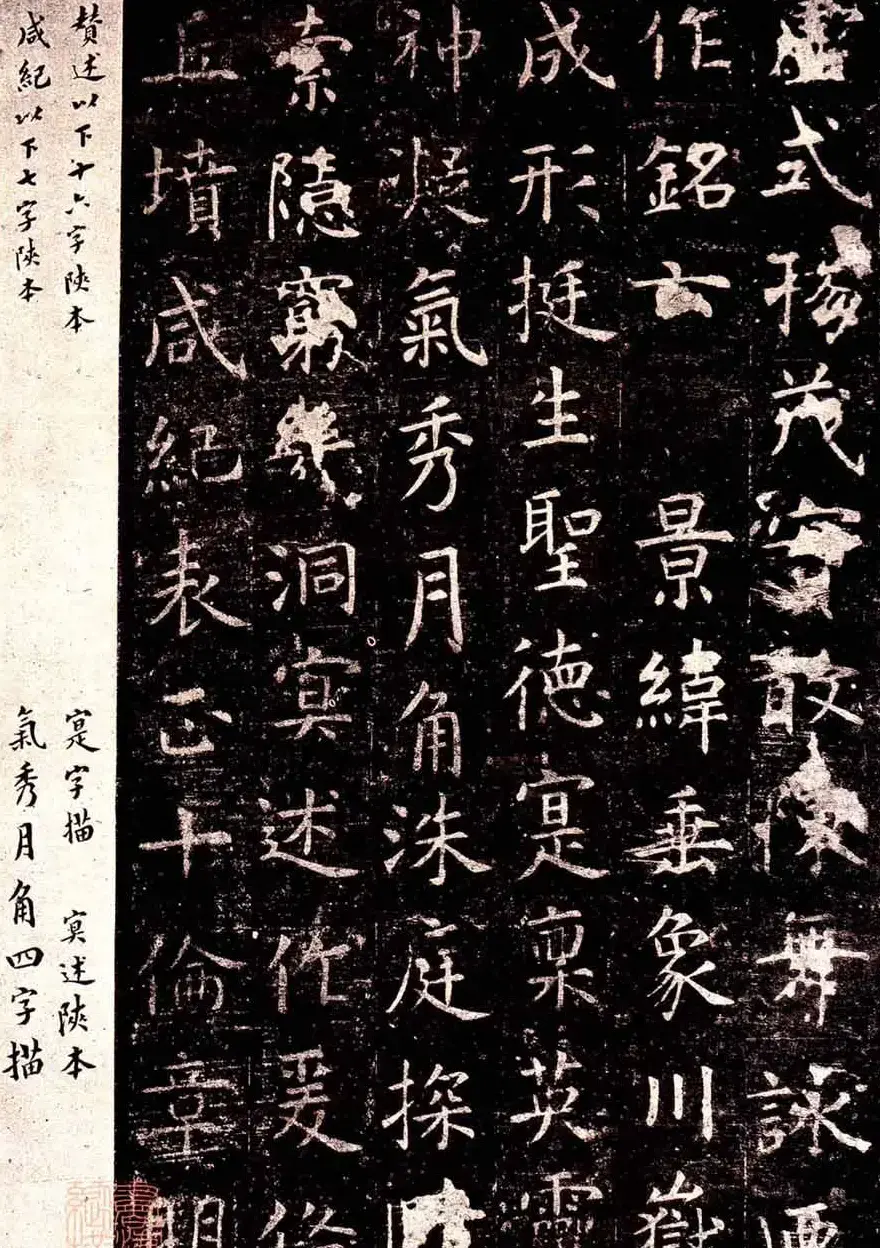 式稽茂實敢陳舞詠迺
作銘云 景緯垂象川嶽
成形挺生聖德寔稟英靈
神凝氣秀月角洙庭探賾
索隱窮幾洞冥述作爰俻
丘墳咸紀表正十倫章明
贊述以下十六字陝本
咸紀以下七字陝本
寔字描 冥述陝本
氣秀月角四字描